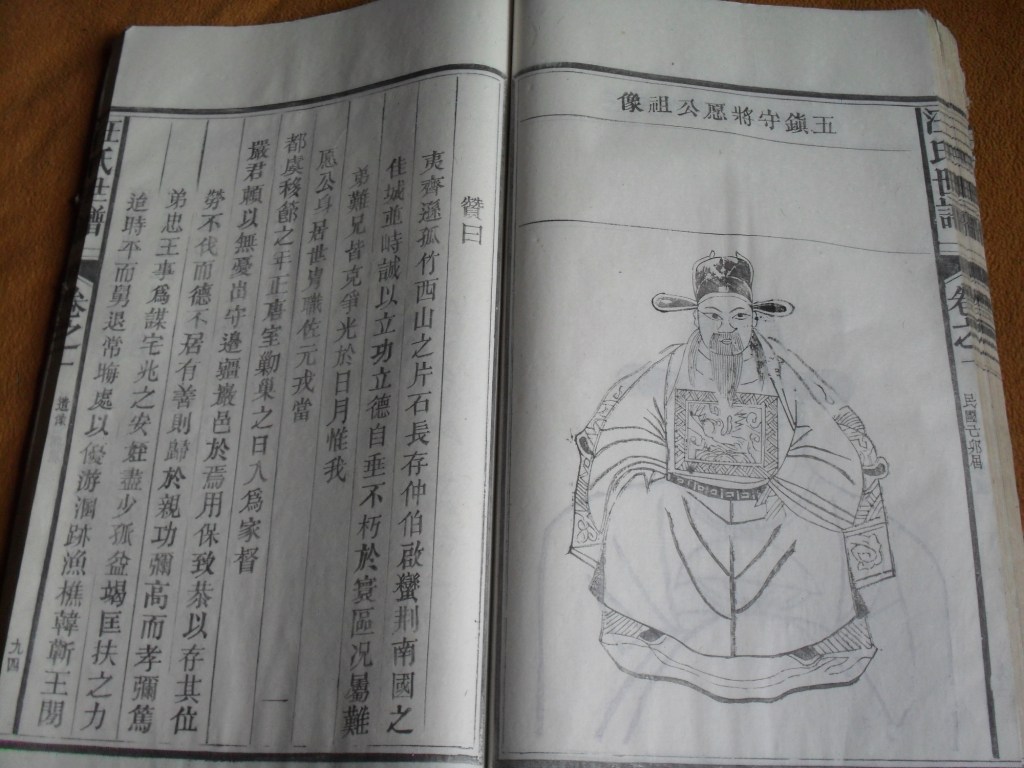 王鎮守將愿公祖像
汪氏世譜
卷之一
贊曰
夷齊遜孤竹西山之片石長存仲伯啟蠻荆南國之
佳城並時誠以立功立德自垂不朽於寰區况曷難
弟難兄皆克爭光於日月惟我
愿公身居世胄職佐元戎當
都虞移節之年正唐室勦巢之日入為家督
嚴君頼以無憂出守邊疆巖邑於焉用保致恭以存其位
勞不伐而德不居有善則歸於親功彌高而孝彌篤
弟忠王事為謀宅兆之安姪盡少孤益竭匡扶之力
迨時平而身退常晦處以優游溷跡漁樵韓蘄王閉
汪氏世譜
卷之一
遺像
九四